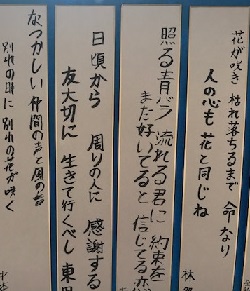 花が咲き 枯れ落ちるまで 命なり
人の心も 花と同じね
照る青バラ 流れる君に 約束を
まだ好いてると 信じてる
日頃から 周りの人に 感謝する
友大切に 生きて行くべし
なつかしい 仲間の声と 風の音
別れの時に 別れの花が咲く